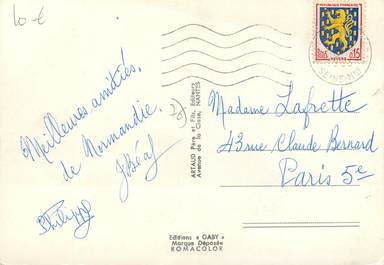 10 €
Meilleures amitiés.
de Normandie.
Philippe
ARTAUD Père et Fils, Editeurs
Avenue de la Close, NANTES
Editions « GABY »
Marque Déposée
ROMACOLOR
REPUBLIQUE FRANÇAISE
0,15
Madame Lafrette
43 rue Claude Bernard
Paris 5e